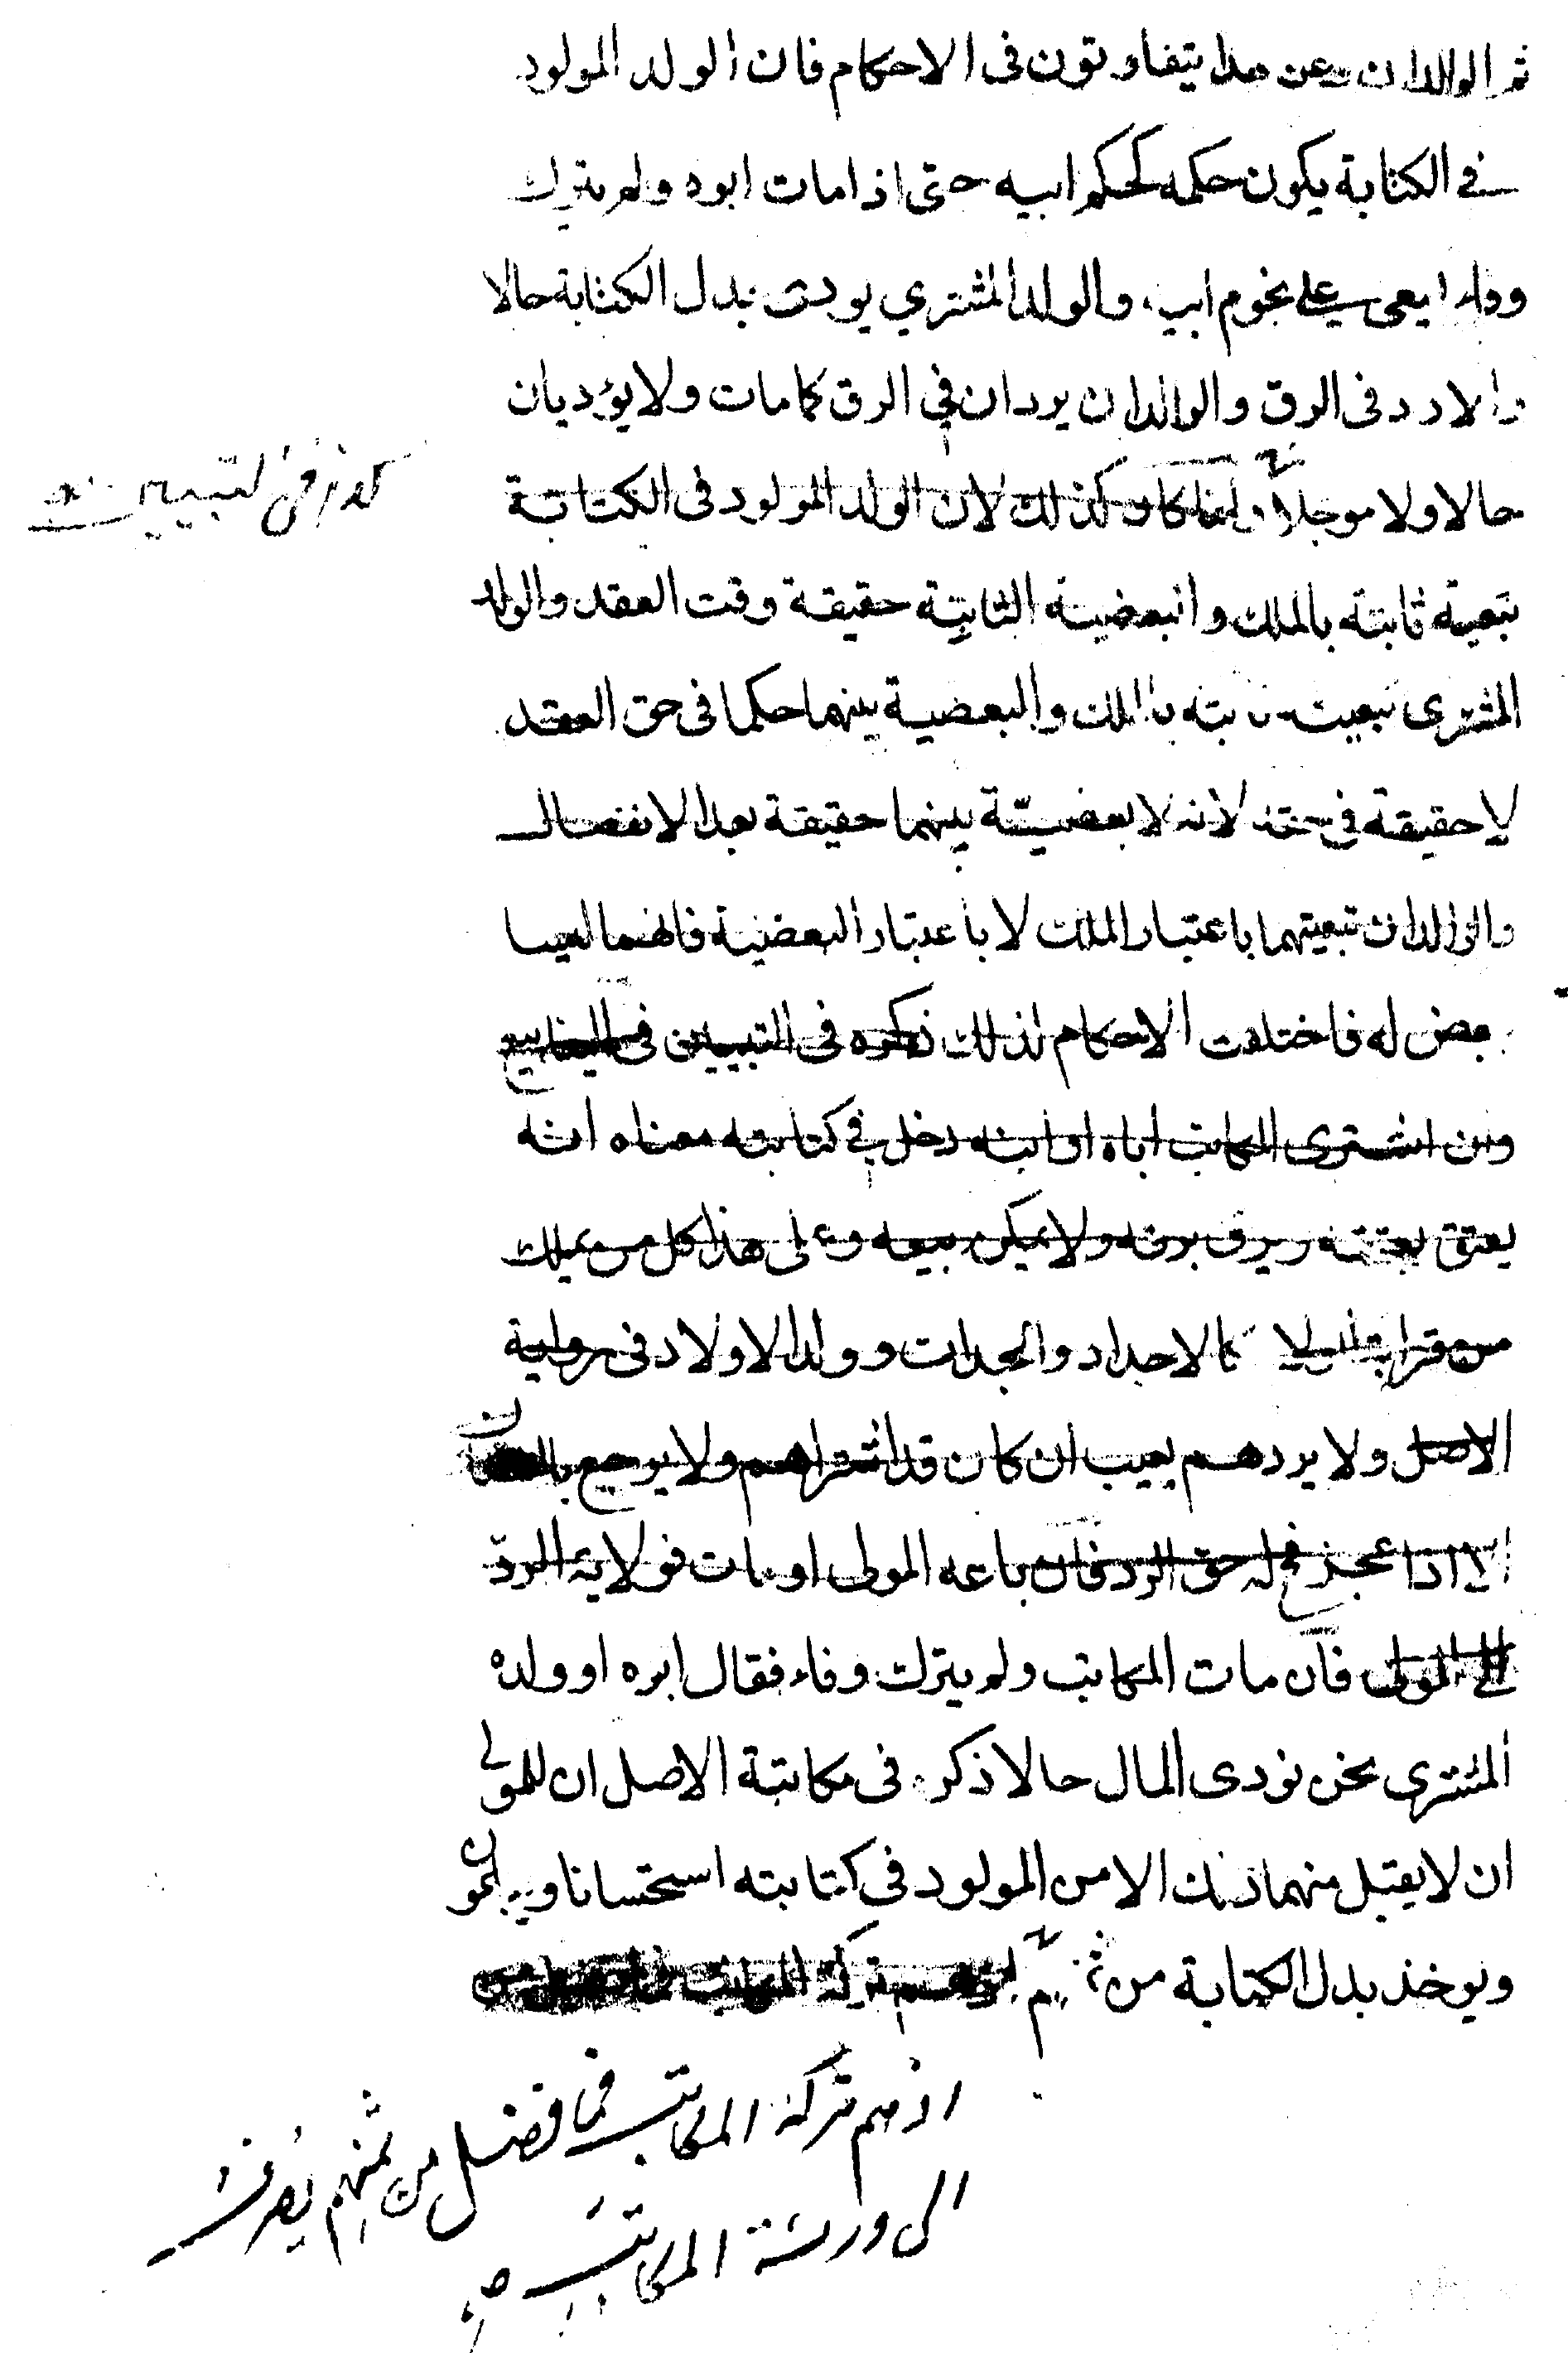 ثم الوالدان وعن هذا يتفاوتون فى الاحكام فان الولد المولود
فى الكتابة يكون حكمه كحكم ابيه حتى اذا مات ابوه ولم يترك
وفاء يسعى على نجوم ابيه والولد المشتري يودى بدل الكتابة حالا
والا رد فى الرق والوالدان يردان فى الرق كما مات ولا يؤديان
حالا ولا موجلا وانما كان كذلك لان الولد المولود فى الكتابة
تبعية ثابتة بالملك والبعضية الثابتة حقيقة وقت العقد والولد
المشترى تبعيته ثابتة بالملك والبعضية بينهما حكما فى حق العقد
لا حقيقة فى حقه لانه لا بعضيّة بينهما حقيقة بعد الانفصال
والوالدان تبعيتهما باعتبار الملك لا باعتبار البعضية فانهما ليسا
ببعض له فاختلفت الاحكام لذلك ذكره فى التبيين فى الينابيع
وان اشترى المكاتب اباه او ابنه دخل فى كتابته معناه انه
يعتق بعتقه ويرق برقه ولا يمكن بيعه وعلى هذا كل من يملك
من قرابة الولا كالاجداد والجدات وولد الاولاد فى رواية
الاصل ولا يردهم بعيب ان كان قد اشتراهم ولا يرجع
الا اذا عجز فح له حق الرد فان باعه المولى او مات فولاية الردّ
الى المولى فان مات المكاتب ولم يترك وفاء فقال ابوه او ولده
المشترى نحن نودى المال حالا ذكر فى مكاتبة الاصل ان للمولى
ان لا يقبل منهما ذلك الا من المولود فى كتابته استحسانا
ويوخذ بدل الكتابة من تركة المكاتب
اذ هم تركة المكاتب فما فضل من ثمنهم يصرف
الى ورثة المكاتب
كذا فى التبيين